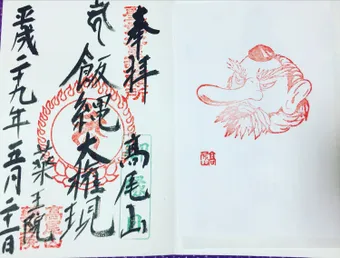 奉拝
高尾山
飯縄大権現
薬王院
平成二十九年五月二十一日
高